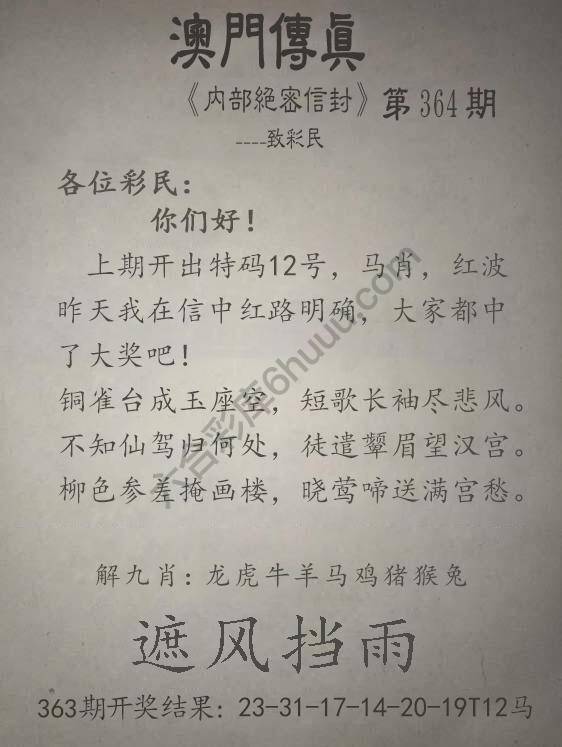 澳門傳眞
《内部絕密信封》第364期
----致彩民
各位彩民：
你们好！
上期开出特码12号，马肖，红波
昨天我在信中红路明确，大家都中
了大奖吧！
铜雀台成玉座空，短歌长袖尽悲风。
不知仙驾归何处，徒遣颦眉望汉宫。
柳色参差掩画楼，晓莺啼送满宫愁。
六合彩库6huuu.com
解九肖：龙虎牛羊马鸡猪猴兔
遮风挡雨
363期开奖结果：23-31-17-14-20-19T12马